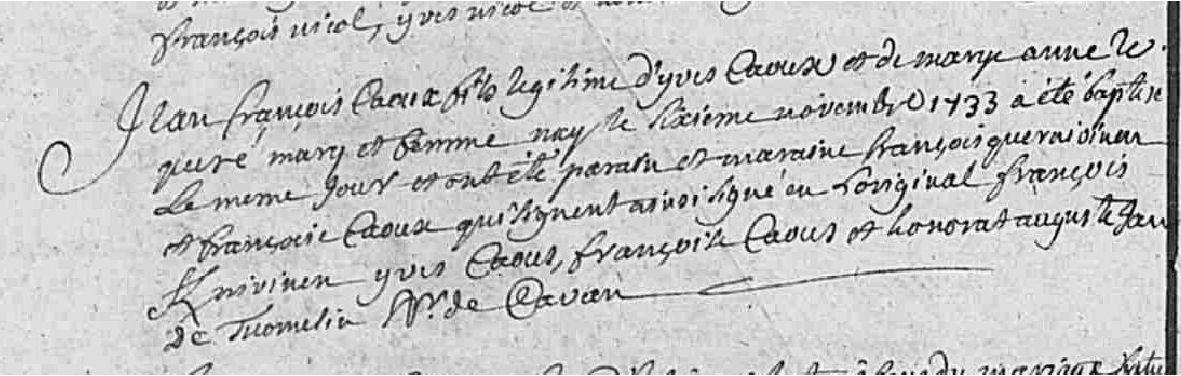 françois nicol, yves nicol et
Jean françois Caoux fils legitime d'yves Caoux et de marye anne le
queré mary et femme nay le sixieme novembre 1733 a été baptise
le meme jour et ont été parain et maraine françois quernivinen
et françoise Caoux qui signent ainsi signé en l'original françois
Knivinen yves Caous, françoise Caous et honorat auguste Jan
de Tuomelin Vr. de Cavan
du mariage